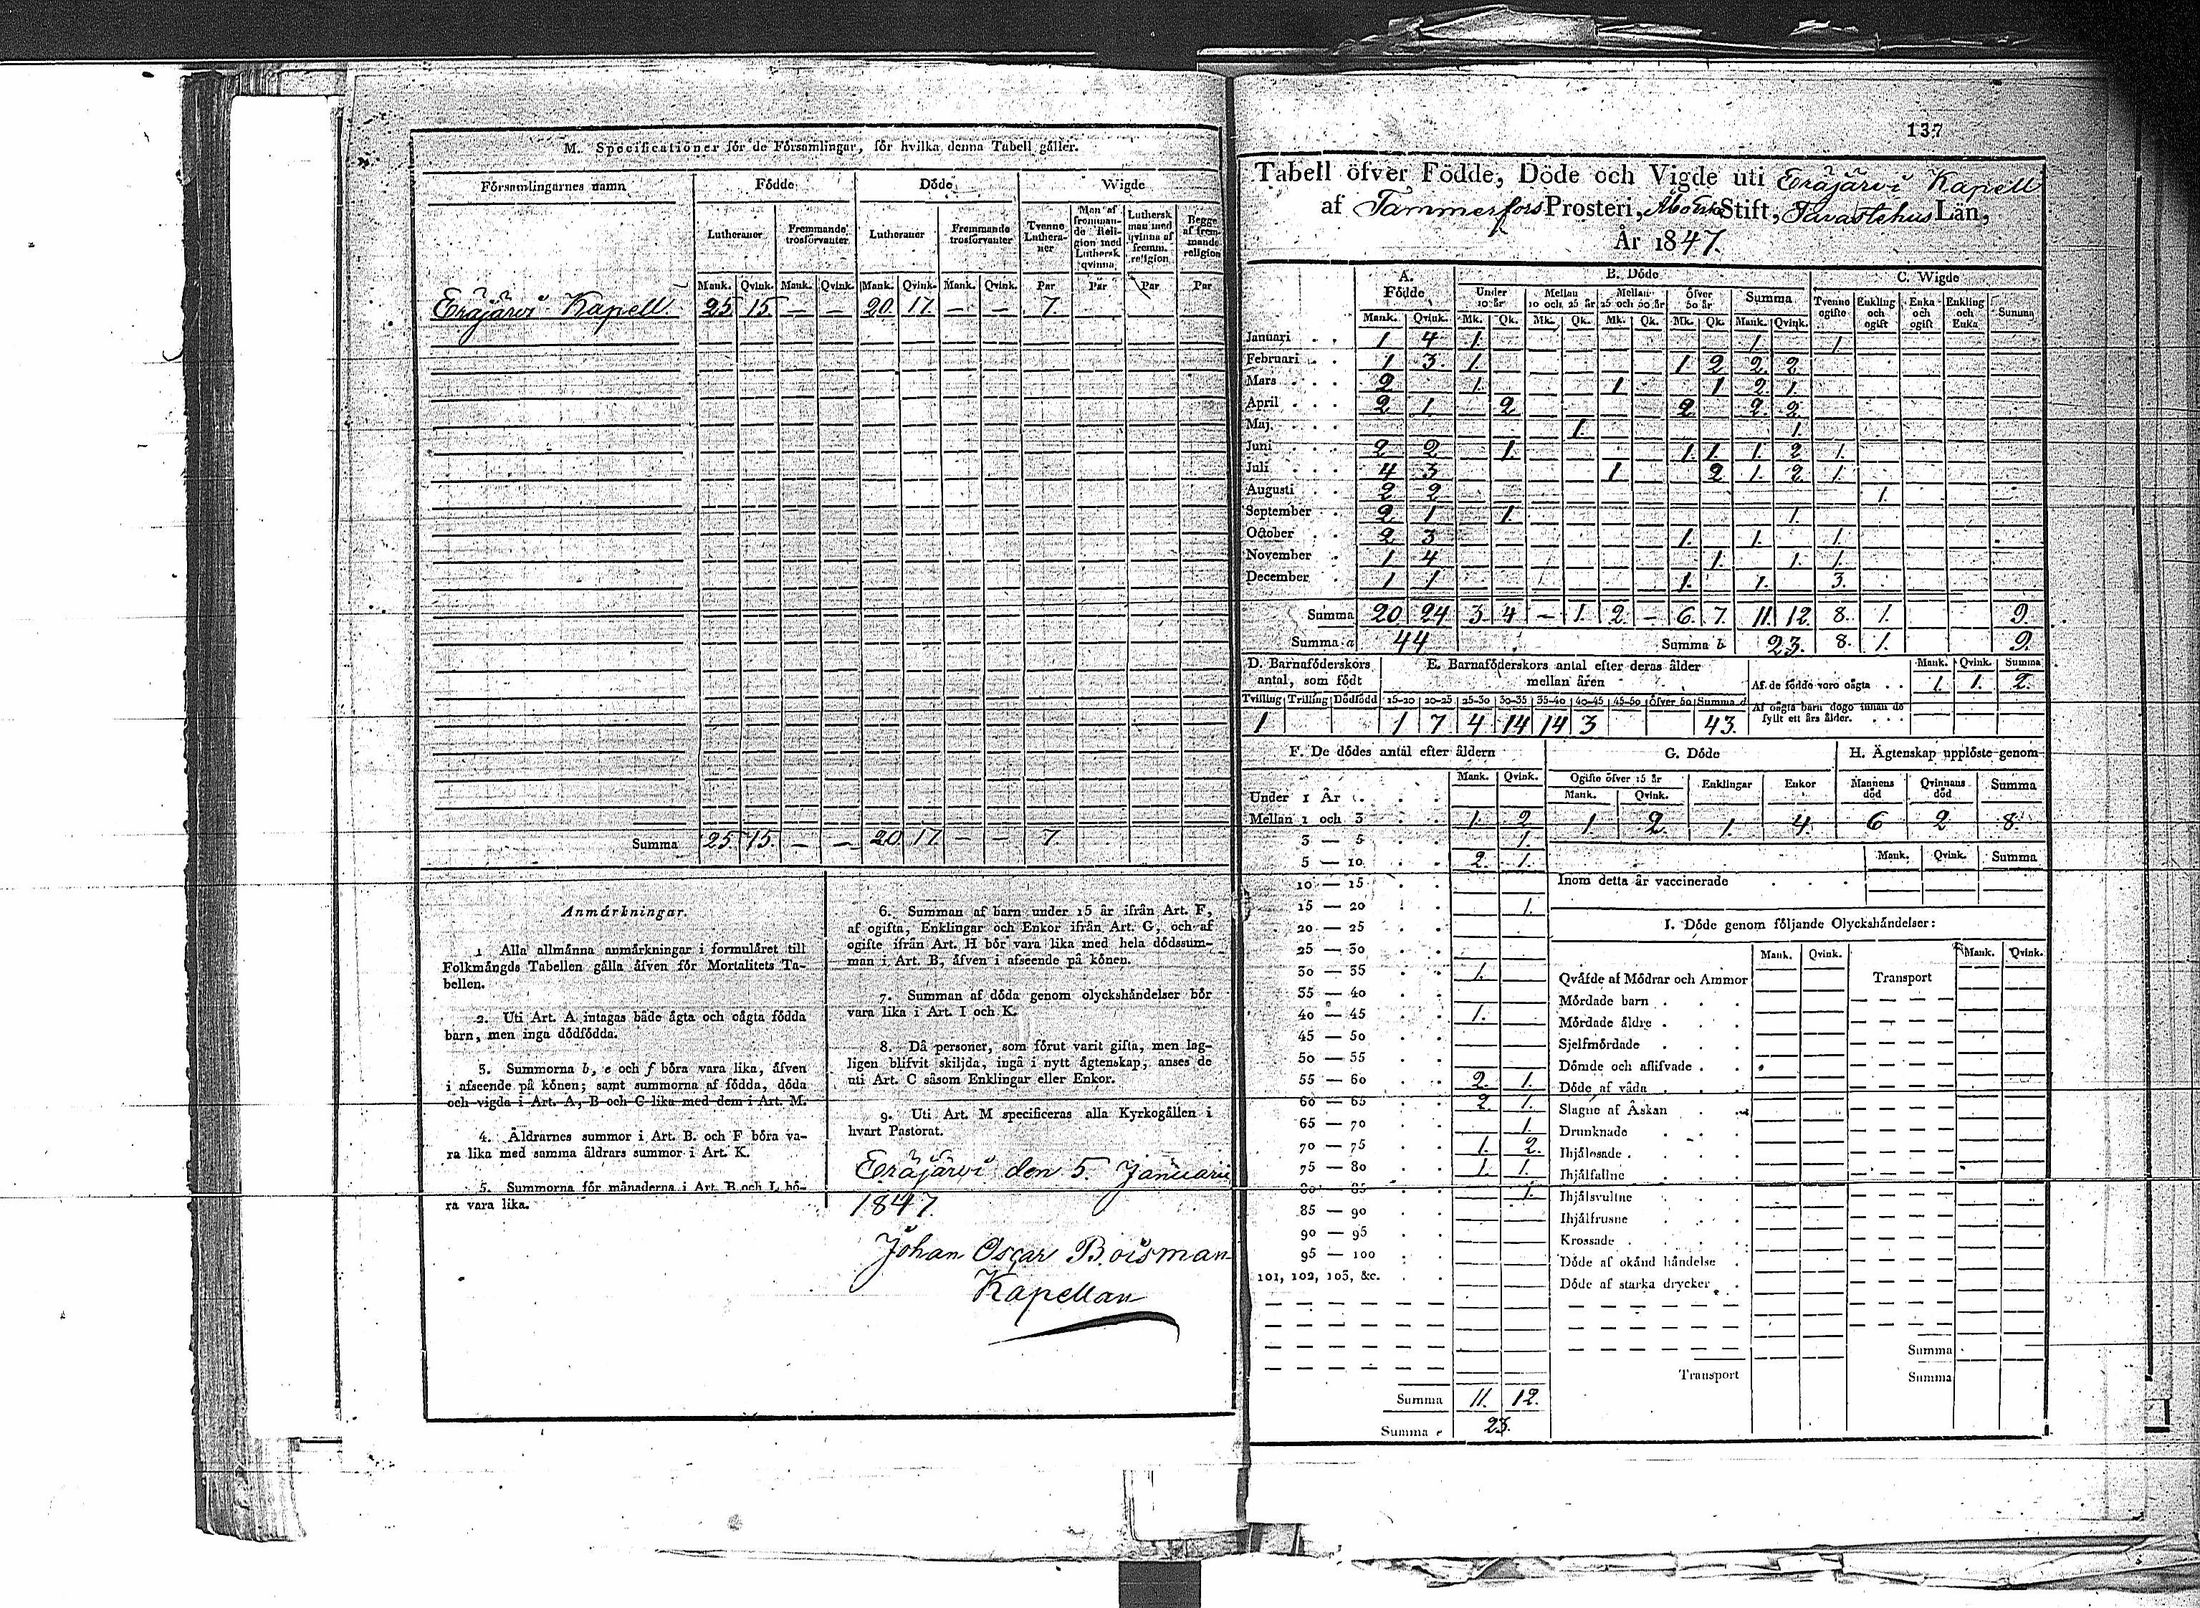 M. Specificationer för de Församlingar, för hvilka denna Tabell gäller.
Församlingarnes namn Födde Döde Wigde
Lutheraner Fremmande trosförvanter Lutheraner Fremmande trosförvanter Tvenne Lutheraner Man af fremmande Religion med Luthersk qvinna Luthersk man med qvinna af fremm. religion Begge af fremmande religion
Mank. Qvink. Mank. Qvink. Mank. Qvink. Mank. Qvink. Par Par Par Par
Eräjärvi Kapell 25 15 — — 20 17 — — 7.
Summa 25. 15. — — 20 17. — — 7.
Anmärkningar.
1 Alla allmänna anmärkningar i formuläret till
Folkmängds Tabellen gälla äfven för Mortalitets Ta-
bellen.
2. Uti Art. A intagas både ägta och oägta födda
barn, men inga dödfödda.
3. Summorna b, e och f böra vara lika, äfven
i afseende på könen; samt summorna af födda, döda
och vigda i Art. A, B och C lika med dem i Art. M.
4. Åldrarnes summor i Art. B. och F böra va-
ra lika med samma åldrars summor i Art. K.
5. Summorna för månaderna i Art. B och L bö-
ra vara lika.
6. Summan af barn under 15 år ifrån Art. F,
af ogifta, Enklingar och Enkor ifrån Art. G, och af
ogifte ifrån Art. H bör vara lika med hela dödssum-
man i Art. B, äfven i afseende på könen.
7. Summan af döda genom olyckshändelser bör
vara lika i Art. I och K.
8. Då personer, som förut varit gifta, men lag-
ligen blifvit skiljda, ingå i nytt ägtenskap, anses de
uti Art. C såsom Enklingar eller Enkor.
9. Uti Art. M specificeras alla Kyrkogällen i
hvart Pastorat.
Eräjärvi den 5. Januarii
1847
Johan Oscar Boisman
Kapellan
137
Tabell öfver Födde, Döde och Vigde uti Eräjärvi Kapell
af Tammerfors Prosteri, Åbo Stift, Tavastehus Län,
År 1847.
A. Födde B. Döde C. Wigde
Under 10 år Mellan 10 och 25 år Mellan 25 och 50 år Öfver 50 år Summa Tvenne ogifte Enkling och ogift Enka och ogift Enkling och Enka Summa
Mank. Qvink. Mk. Qk. Mk. Qk. Mk. Qk. Mk. Qk. Mank. Qvink.
Januari 1 4 1. 1. 1.
Februari 1 3. 1. 1 2 2. 2
Mars 2 1. 1 1 2 1.
April 2 1. 2 2 2. 2
Maj. 1. 1
Juni 2 2 1. 1 1. 1. 2 1.
Juli 4 3 1 2 1. 2 1.
Augusti 2 2 1.
September 2 1 1. 1.
October 2 3 1. 1. 1.
November 1 4 1. 1. 1.
December 1 1 1. 1. 3.
Summa 20 24 3. 4 — 1. 2 — 6. 7. 11. 12. 8. 1. 9.
Summa a 44 Summa b 23. 8. 1. 9.
D. Barnaföderskors antal, som födt
Tvilling Trilling Dödfödd
1
E. Barnaföderskors antal efter deras ålder mellan åren
15-20 20-25 25-30 30-35 35-40 40-45 45-50 öfver 50 Summa d
1 7 4 14 14 3 43.
Mank. Qvink. Summa
Af de födde voro oägta 1. 1. 2.
Af oägta barn dogo innan de fyllt ett års ålder.
F. De dödes antal efter åldern
Mank. Qvink.
Under 1 År
Mellan 1 och 3 1. 2
3 — 5 1.
5 — 10 2. 1.
10 — 15
15 — 20 1.
20 — 25
25 — 30
30 — 35 1.
35 — 40
40 — 45 1.
45 — 50
50 — 55
55 — 60 2. 1.
60 — 65 2. 1.
65 — 70 1.
70 — 75 1. 2.
75 — 80 1. 1.
80 — 85 1.
85 — 90
90 — 95
95 — 100
101, 102, 103, &c.
Summa 11. 12.
Summa e 23.
G. Döde
Ogifte öfver 15 år Enklingar Enkor
Mank. Qvink.
1. 2. 1. 4.
H. Ägtenskap upplöste genom
Mannens död Qvinnans död Summa
6 2 8.
Mank. Qvink. Summa
Inom detta år vaccinerade
I. Döde genom följande Olyckshändelser:
Mank. Qvink. Mank. Qvink.
Qväfde af Mödrar och Ammor Transport
Mördade barn
Mördade äldre
Sjelfmördade
Dömde och aflifvade
Döde af våda
Slagne af Åskan
Drunknade
Ihjälosade
Ihjälfallne
Ihjälsvultne
Ihjälfrusne
Krossade
Döde af okänd händelse
Döde af starka drycker
Summa
Transport Summa